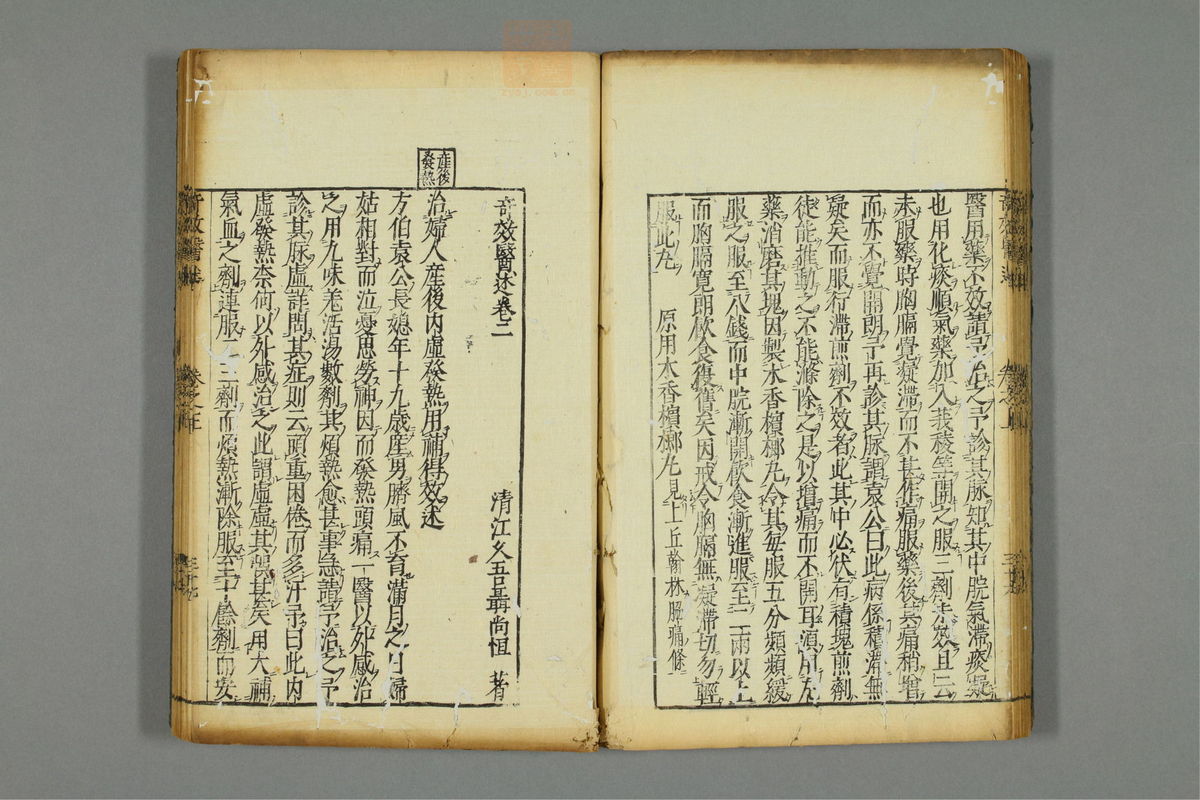 醫用藥不效請予治之予診其脉知其中脘氣滯痰凝
也用化痰順氣藥加入莪稜等開之服三劑未效且云
未服藥時胸膈覺凝滯而不甚作痛服藥後其痛稍增
而亦不覺開朗予再診其脉謂袁公曰此病係積滯無
疑矣而服行滯煎劑不效者此其中必伏有積塊煎劑
徒能推動之不能滌除之是以增痛而不開耳須用丸
藥消磨其塊因製木香檳榔丸令其每服五分頻頻緩
服之服至八錢而中脘漸開飲食漸進服至二兩以上
而胸膈寬朗飲食復舊矣因戒令胸膈無凝滯切勿輕
服此丸 原用木香檳榔丸見上丘翰林腳痛條
奇效醫述卷二
清江久吾聶尚恒 著
產後發熱
治婦人產後內虛發熱用補得效述
方伯袁公長媳年十九歲產男臍風不育滿月之日婦
姑相對而泣憂思勞神因而發熱頭痛一醫以外感治
之用九味羌活湯數劑其煩熱愈甚事急請予治之予
診其脉虛詳問其症則云頭重困倦而多汗予曰此內
虛發熱柰何以外感治之此謂虛虛其誤甚矣用大補
氣血之劑連服二三劑而煩熱漸除服至十餘劑而安
奇效醫述
卷之上
奇效醫述
卷之上
zysj.com.cn